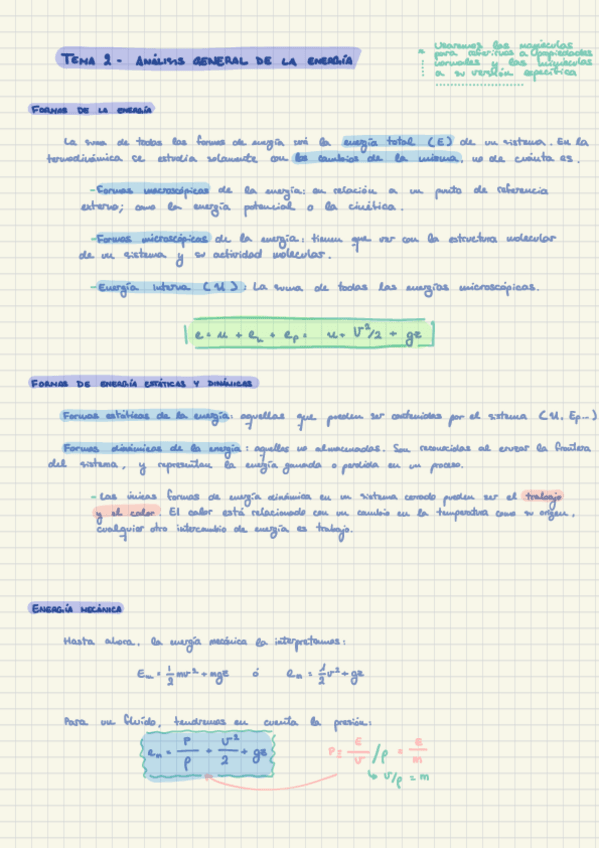 TEMA 2 - ANÁLISIS GENERAL DE LA ENERGÍA
* Usaremos las mayúsculas
para referirnos a propiedades
formales y las minúsculas
a su versión específica
FORMAS DE LA ENERGÍA
La suma de todas las formas de energía será la energía total (E) de un sistema. En la
termodinámica se estudia solamente con los cambios de la misma, no de cuánta es.
- Formas macroscópicas de la energía: en relación a un punto de referencia
externo; como la energía potencial o la cinética.
- Formas microscópicas de la energía: tienen que ver con la estructura molecular
de un sistema y su actividad molecular.
- Energía interna (U): La suma de todas las energías microscópicas.
e = u + eₖ + eₚ = u + V²/2 + gz
FORMAS DE ENERGÍA ESTÁTICAS Y DINÁMICAS
Formas estáticas de la energía: aquellas que pueden ser contenidas por el sistema (U, Ep...)
Formas dinámicas de la energía: aquellas no almacenadas. Son reconocidas al cruzar la frontera
del sistema, y representan la energía ganada o perdida en un proceso.
- Las únicas formas de energía dinámica en un sistema cerrado pueden ser el trabajo
y el calor. El calor está relacionado con un cambio en la temperatura como su origen,
cualquier otro intercambio de energía es trabajo.
ENERGÍA MECÁNICA
Hasta ahora, la energía mecánica la interpretamos:
Eₘ = 1/2 mv² + mgz ó eₘ = 1/2 v² + gz
Para un fluido, tendremos en cuenta la presión:
eₘ = P/ρ + V²/2 + gz P = E/V /ρ = E/m
↳ V/ρ = m